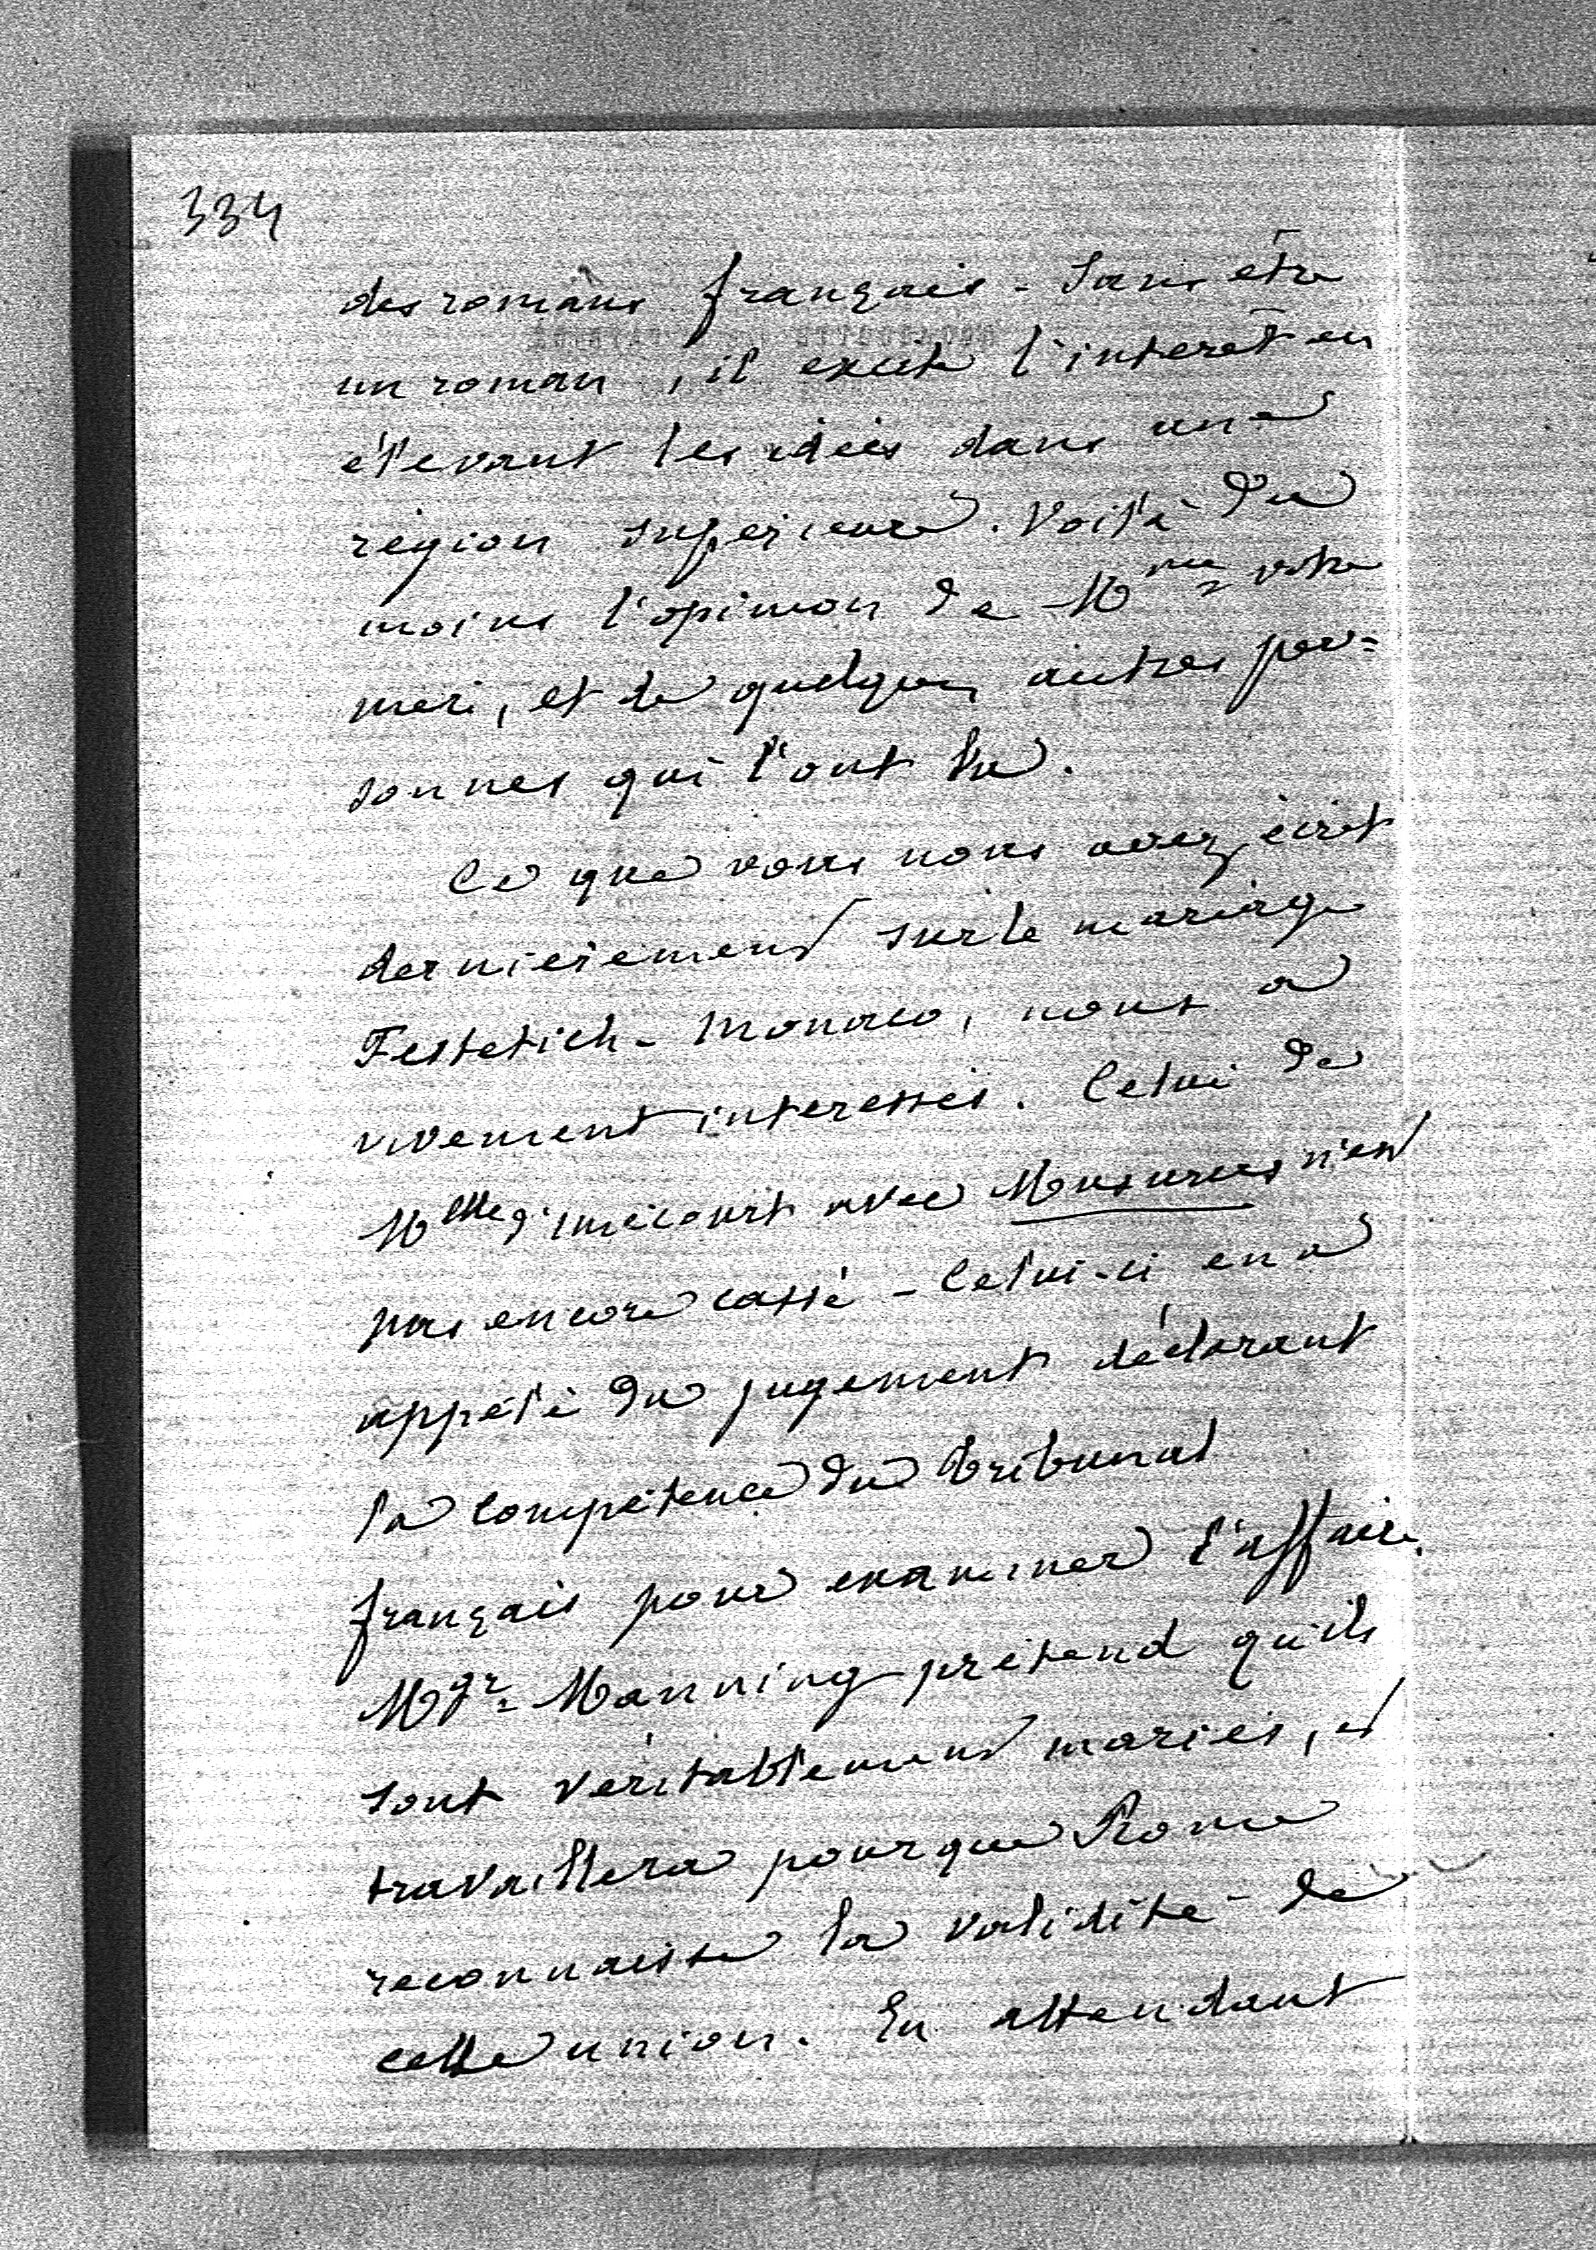 334
des romans français - Sans être
un roman, il excite l'intérêt en
élevant les idées dans une
région supérieure. Voilà du
moins l'opinion de Mme votre
mère, et de quelques autres per=
sonnes qui l'ont lu.
Ce que vous nous avez écrit
dernièrement sur le mariage
Festetich-Monaco, nous a
vivement interessés. Celui de
Melle d'Imécourt avec Musurus n'est
pas encore cassé - Celui-ci en a
appelé du jugement déclarant
la compétence du Tribunal
français pour examiner l'affaire.
Mgr. Manning prétend qu'ils
sont véritablement mariés, et
travaillera pour que Rome
reconnaisse la validité de
cette union. En attendant